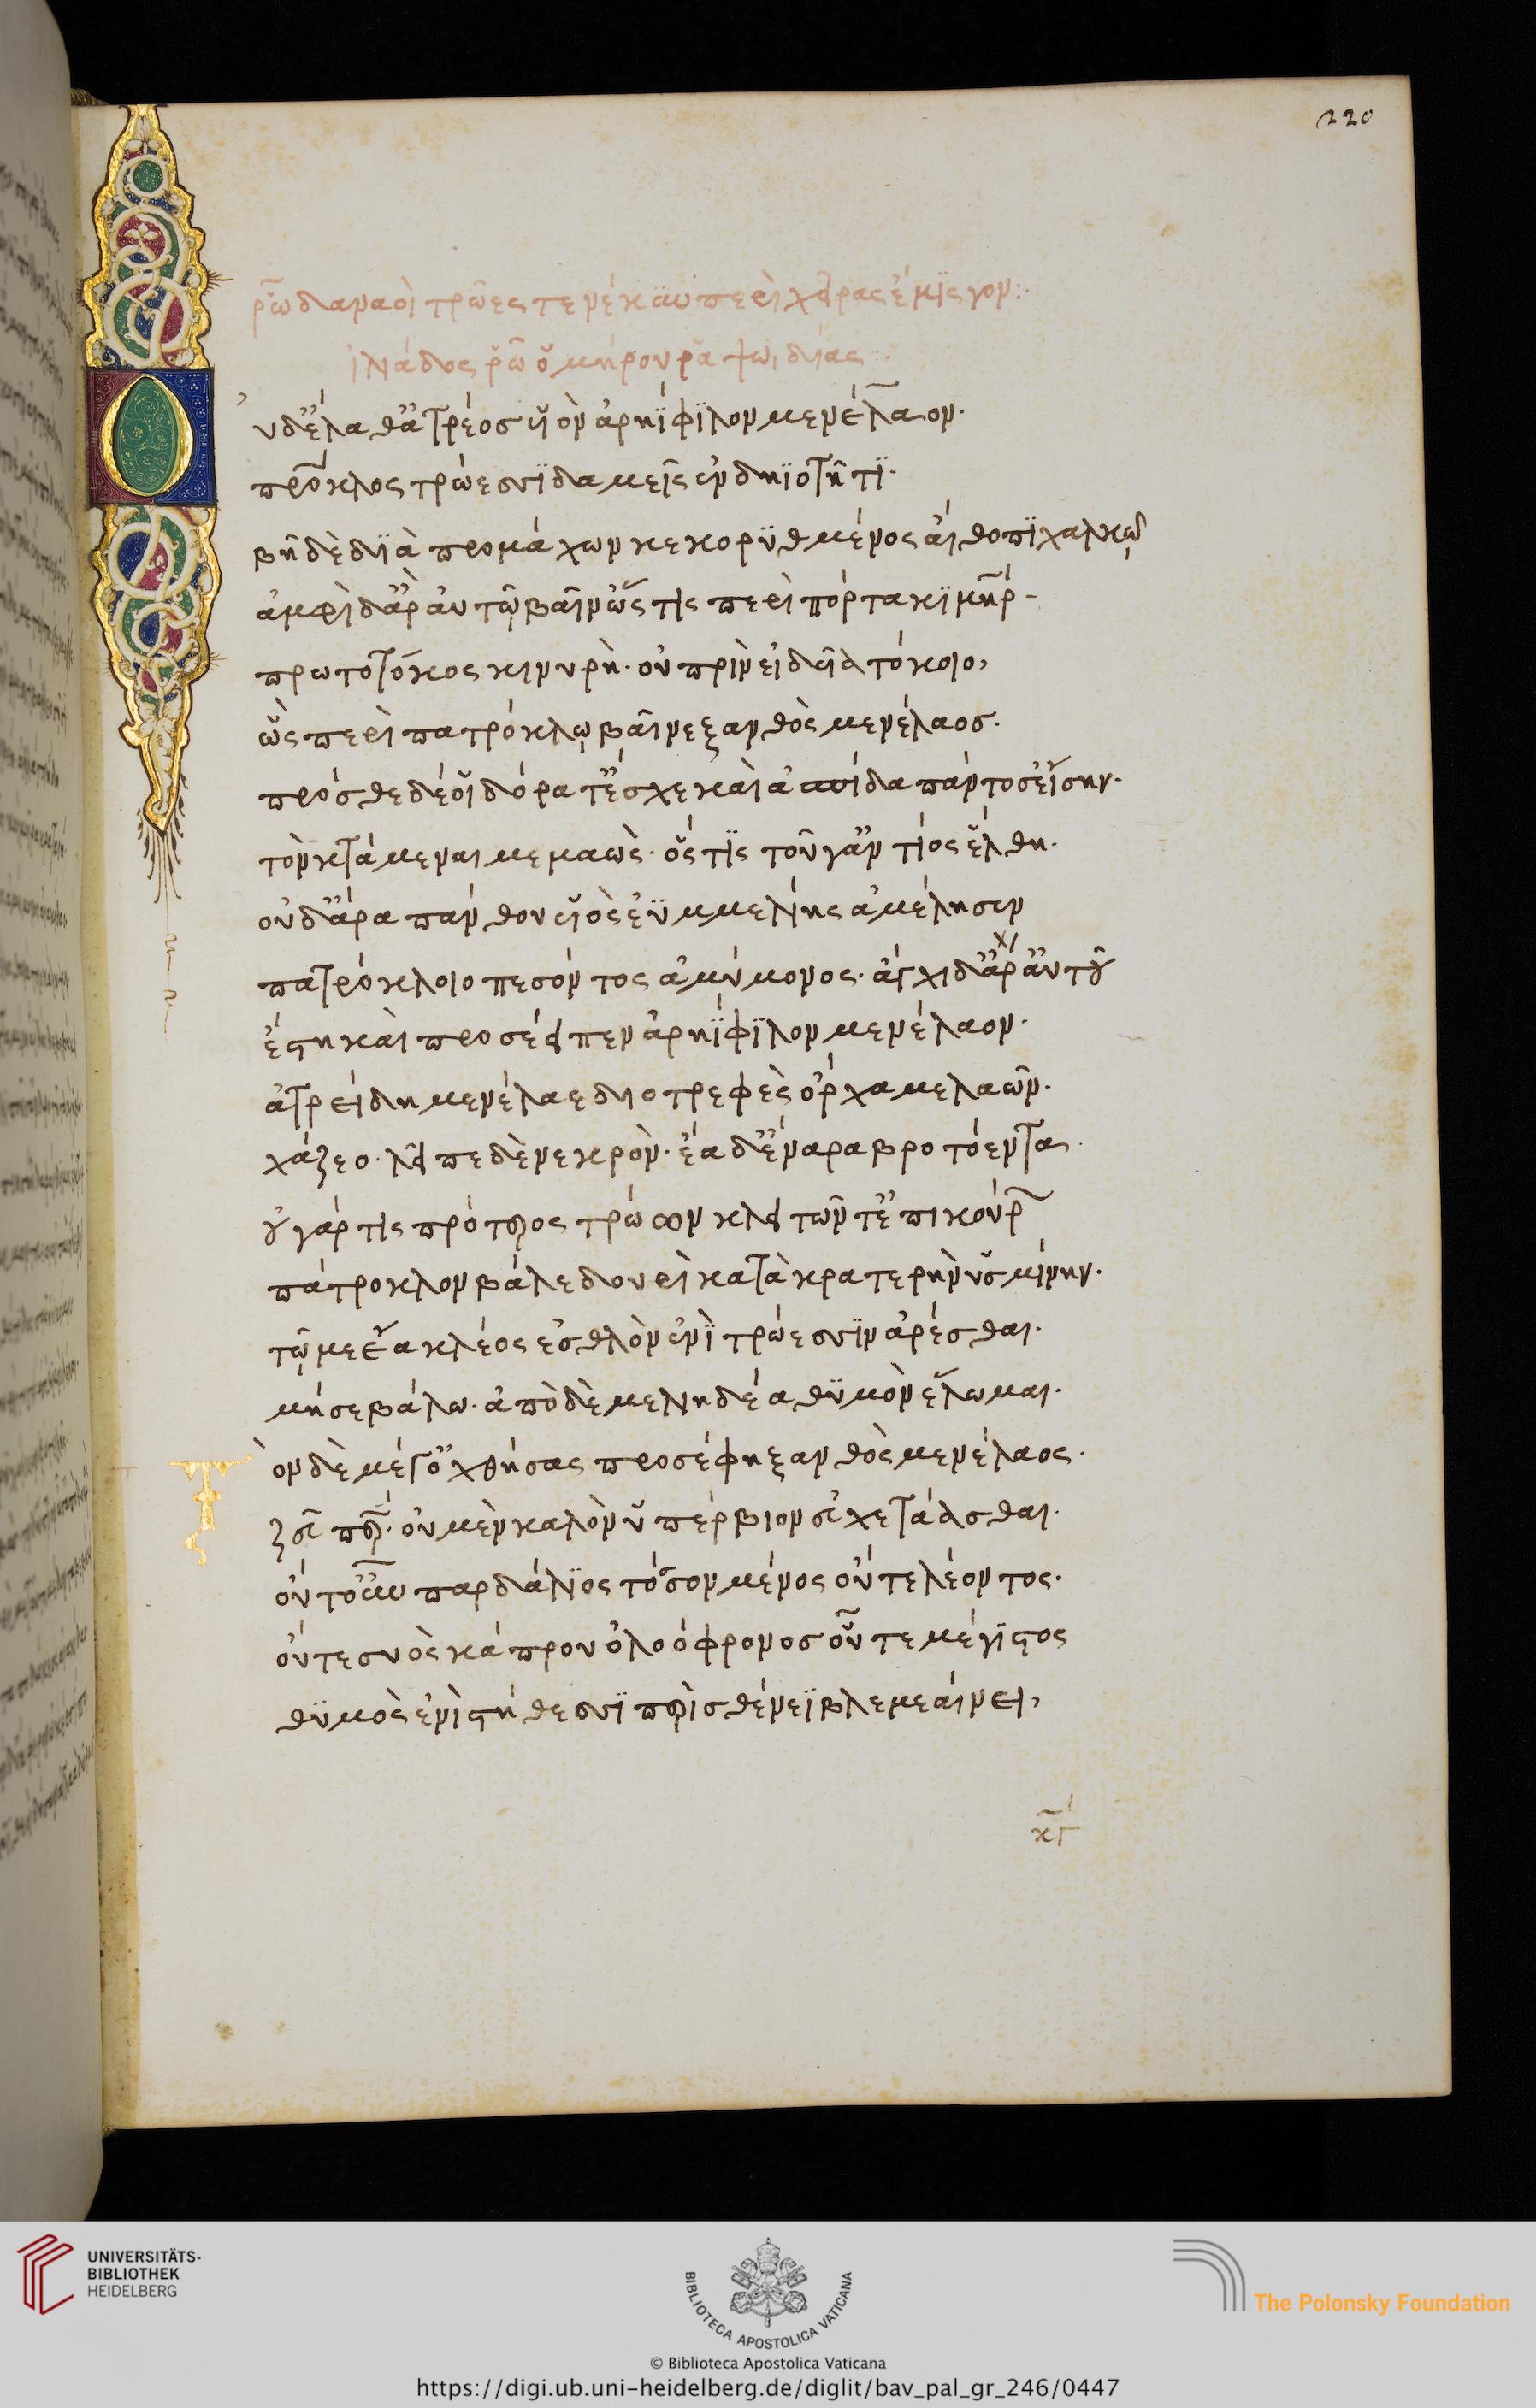 220
ρῶ δαναοὶ τρῶές τε νέκυν περὶ χεῖρας ἔμισγον:·
ἰλιάδος ρῶ ὁμήρου ραψωιδίας:
Ο
ὐδ' ἔλαθ' ἀτρέος ὑϊὸν ἀρηΐφιλον μενέλαον.
πάτροκλος τρώεσσϊ δαμεὶς ἐν δηϊοτῆτϊ.
βῆ δὲ διὰ προμάχων κεκορυθμένος αἴθοπι χαλκῷ
ἀμφὶ δ' ἄρ' ἀυτῷ βαῖν' ὥς τις περὶ πόρτακι μήτηρ
πρωτοτόκος κινυρὴ. οὐ πρὶν εἰδυῖα τόκοιο,
ὣς περὶ πατρόκλῳ βαῖνε ξανθὸς μενέλαος.
πρόσθε δέ οἱ δόρατ' ἔσχε καὶ ἀσπίδα πάντοσ' εἴσην.
τὸν κτάμεναι μεμαὼς. ὅς τις τοῦ γ' ἀντίος ἔλθη.
οὐδ' ἄρα πάνθου ὑϊὸς ἐϋμμελίης ἀμέλησεν
πατρόκλοιο πεσόντος ἀμύμονος. ἄγχι δ' ἄρ' ἀυτοῦ
ἔστη καὶ προσέειπεν ἀρηΐφιλον μενέλαον.
ἀτρείδη μενέλαε διοτρεφὲς ὄρχαμε λαῶν.
χάζεο. λεῖπε δὲ νεκρὸν. ἔα δ' ἔναρα βροτόεντα.
οὐ γάρ τις πρότερος τρώων κλειτῶν τ' ἐπικούρων
πάτροκλον βάλε δουρὶ κατὰ κρατερὴν ὑσμίνην.
τῷ με ἔα κλέος ἐσθλὸν ἐνὶ τρώεσσιν ἀρέσθαι.
μή σε βάλω. ἀπὸ δὲ μελιηδέα θυμὸν ἕλωμαι.
Τὸν δὲ μέγ' ὀχθήσας προσέφη ξανθὸς μενέλαος.
ζεῦ πάτερ. οὐ μὲν καλὸν ὑπέρβιον εὐχετάασθαι.
οὔτ' οὖν παρδάλιος τόσσον μένος οὔτε λέοντος.
οὔτε συὸς κάπρου ὀλοόφρονος οὗτε μέγιστος
θυμὸς ἐνὶ στήθεσσι περὶ σθένεϊ βλεμεαίνει,
κγ
UNIVERSITÄTS-
BIBLIOTHEK
HEIDELBERG
BIBLIOTECA APOSTOLICA VATICANA
The Polonsky Foundation
© Biblioteca Apostolica Vaticana
https://digi.ub.uni-heidelberg.de/diglit/bav_pal_gr_246/0447